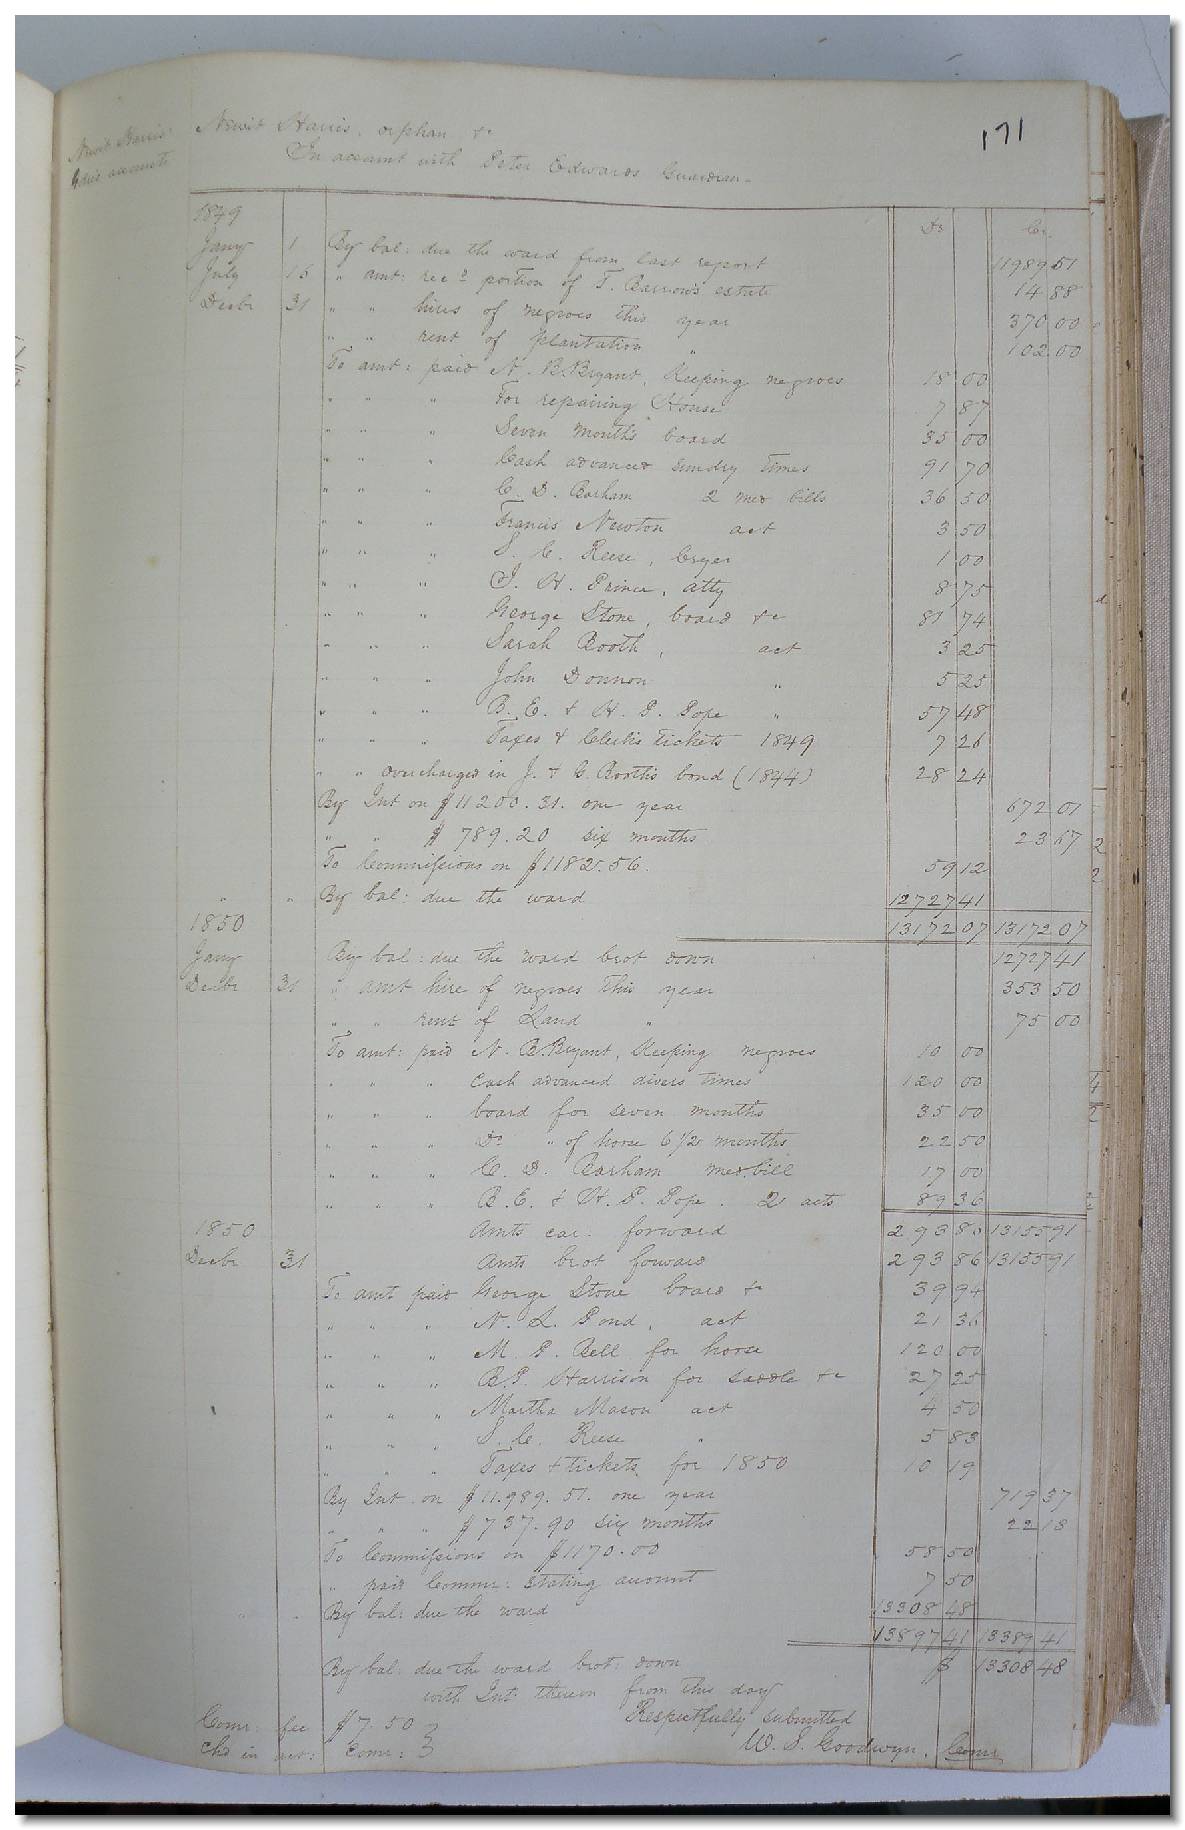 171
Newit Harris
Gdn's accounts
Newit Harris, orphan &c
In account with Peter Edwards Guardian
1849 Dr Cr.
Jany 1 By bal: due the ward from last report 11989 51
July 15 " amt: recd portion of T. Barrow's estate 14 88
Decbr 31 " " hires of negroes this year 370 00
" " rent of plantation " 102 00
To amt: paid N. B. Bryant, Keeping negroes 18 00
" " " For repairing House 7 87
" " " Seven months board 35 00
" " " Cash advanced sundry times 91 70
" " " C. D. Barham 2 med bills 36 50
" " " Francis Newton act 3 50
" " " S. C. Reese, Cryer 1 00
" " " J. H. Prince, atty 8 75
" " " George Stone, board &c 81 74
" " " Sarah Booth, act 3 25
" " " John Donnon " 5 25
" " " B. E. & H. P. Pope " 57 48
" " " Taxes & Clerks tickets 1849 7 26
" " overcharged in J. & C. Booth's bond (1844) 28 24
By Int on $11200.31. one year 672 01
" " $789.20 six months 23 67
To Commissions on $1182.56. 59 12
" " By bal: due the ward 12727 41
1850 13172 07 13172 07
Jany By bal: due the ward brot down 12727 41
Decbr 31 " amt hire of negroes this year 353 50
" " rent of Land " 75 00
To amt: paid N. B. Bryant, Keeping negroes 10 00
" " " Cash advanced divers times 120 00
" " " board for seven months 35 00
" " " Do " of horse 6 1/2 months 22 50
" " " C. D. Barham med. bill 17 00
" " " B. E. & H. P. Pope. 2 acts 89 36
1850 Amts car: forward 293 86 13155 91
Decbr 31 Amts brot forward 293 86 13155 91
To amt paid George Stone board &c 39 94
" " " N. L. Pond, act 21 36
" " " M. P. Bell for horse 120 00
" " " B. P. Harrison for saddle &c 27 25
" " " Martha Mason act 4 50
" " " S. C. Reese " 5 83
" " " Taxes & tickets for 1850 10 19
By Int on $11.989.51. one year 719 37
" " " $737.90 six months 22 18
To Commissions on $1170.00 58 50
" paid Commr: stating account 7 50
" " By bal: due the ward 13308 48
13897 41 13389 41
By bal: due the ward brot: down $ 13308 48
with Int thereon from this day
Respectfully submitted
Comr: fee $7.50 }
chd in act: Comr: }
W. S. Goodwyn, Comr